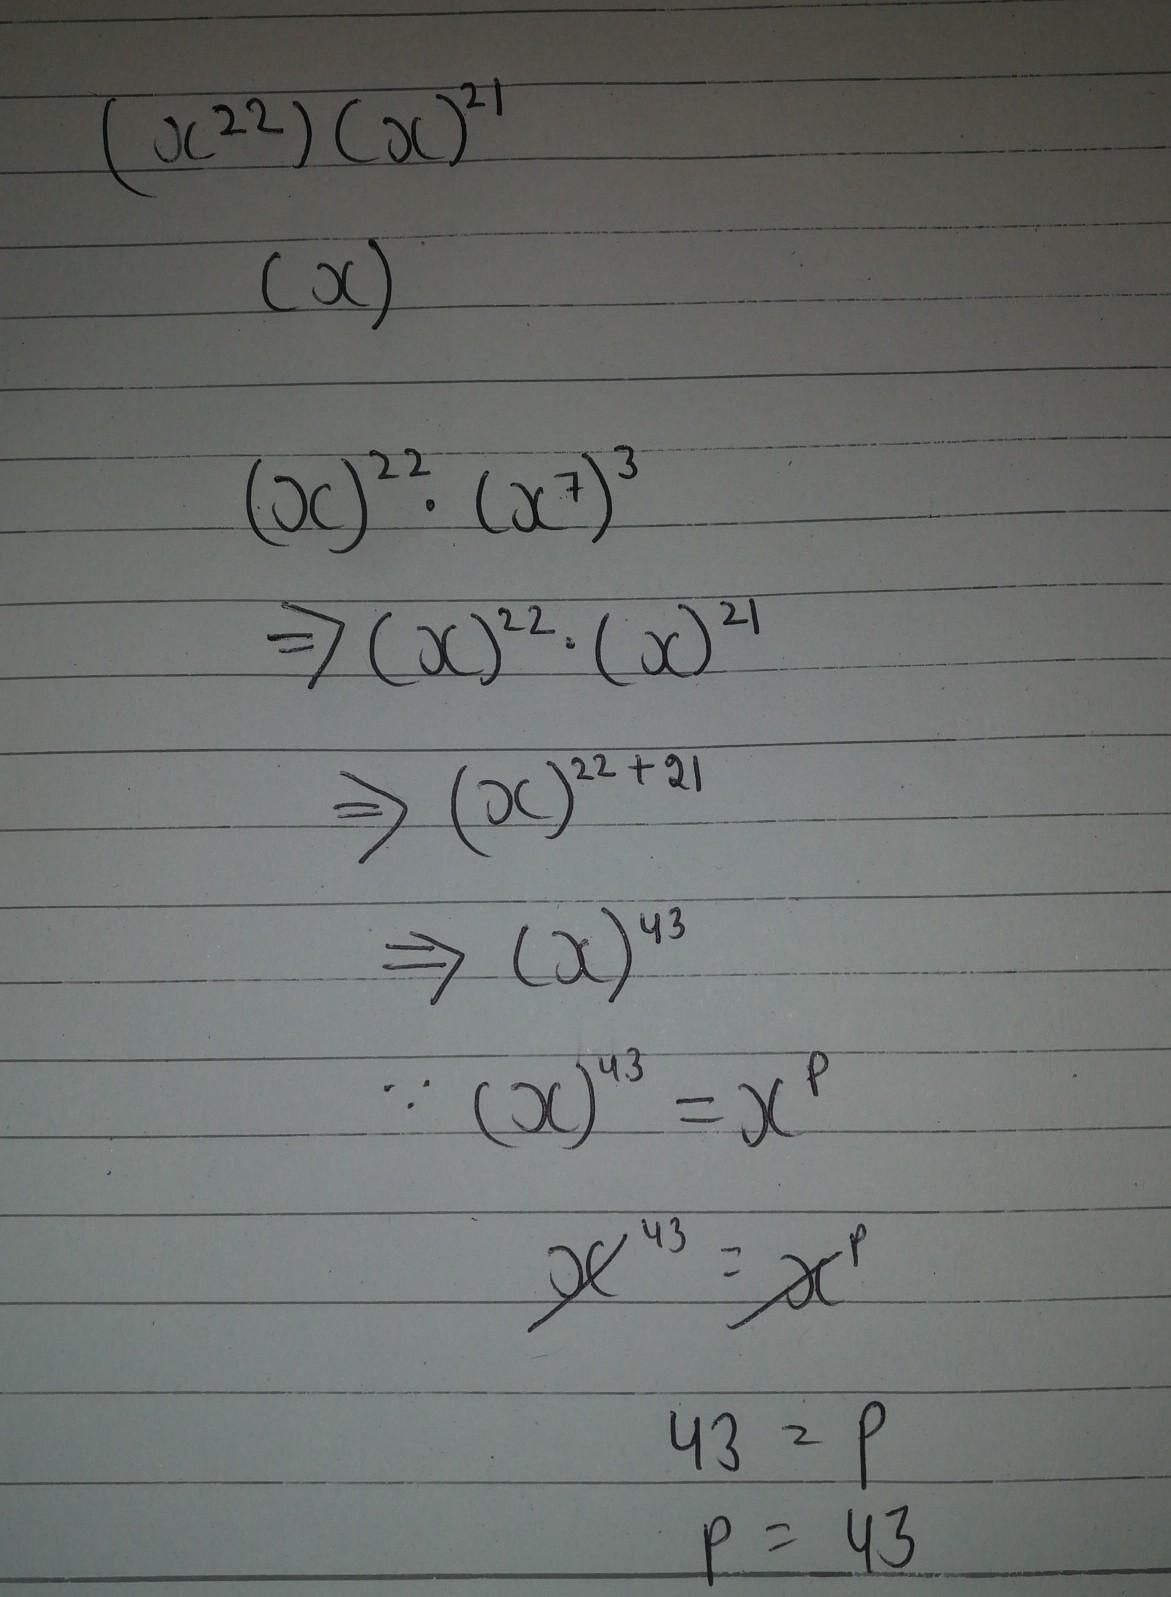 (x²²)(x)²¹
(x)
(x)²² · (x⁷)³
⇒ (x)²² · (x)²¹
⇒ (x)²²⁺²¹
⇒ (x)⁴³
∵ (x)⁴³ = xᵖ
x⁴³ = xᵖ
43 = p
p = 43